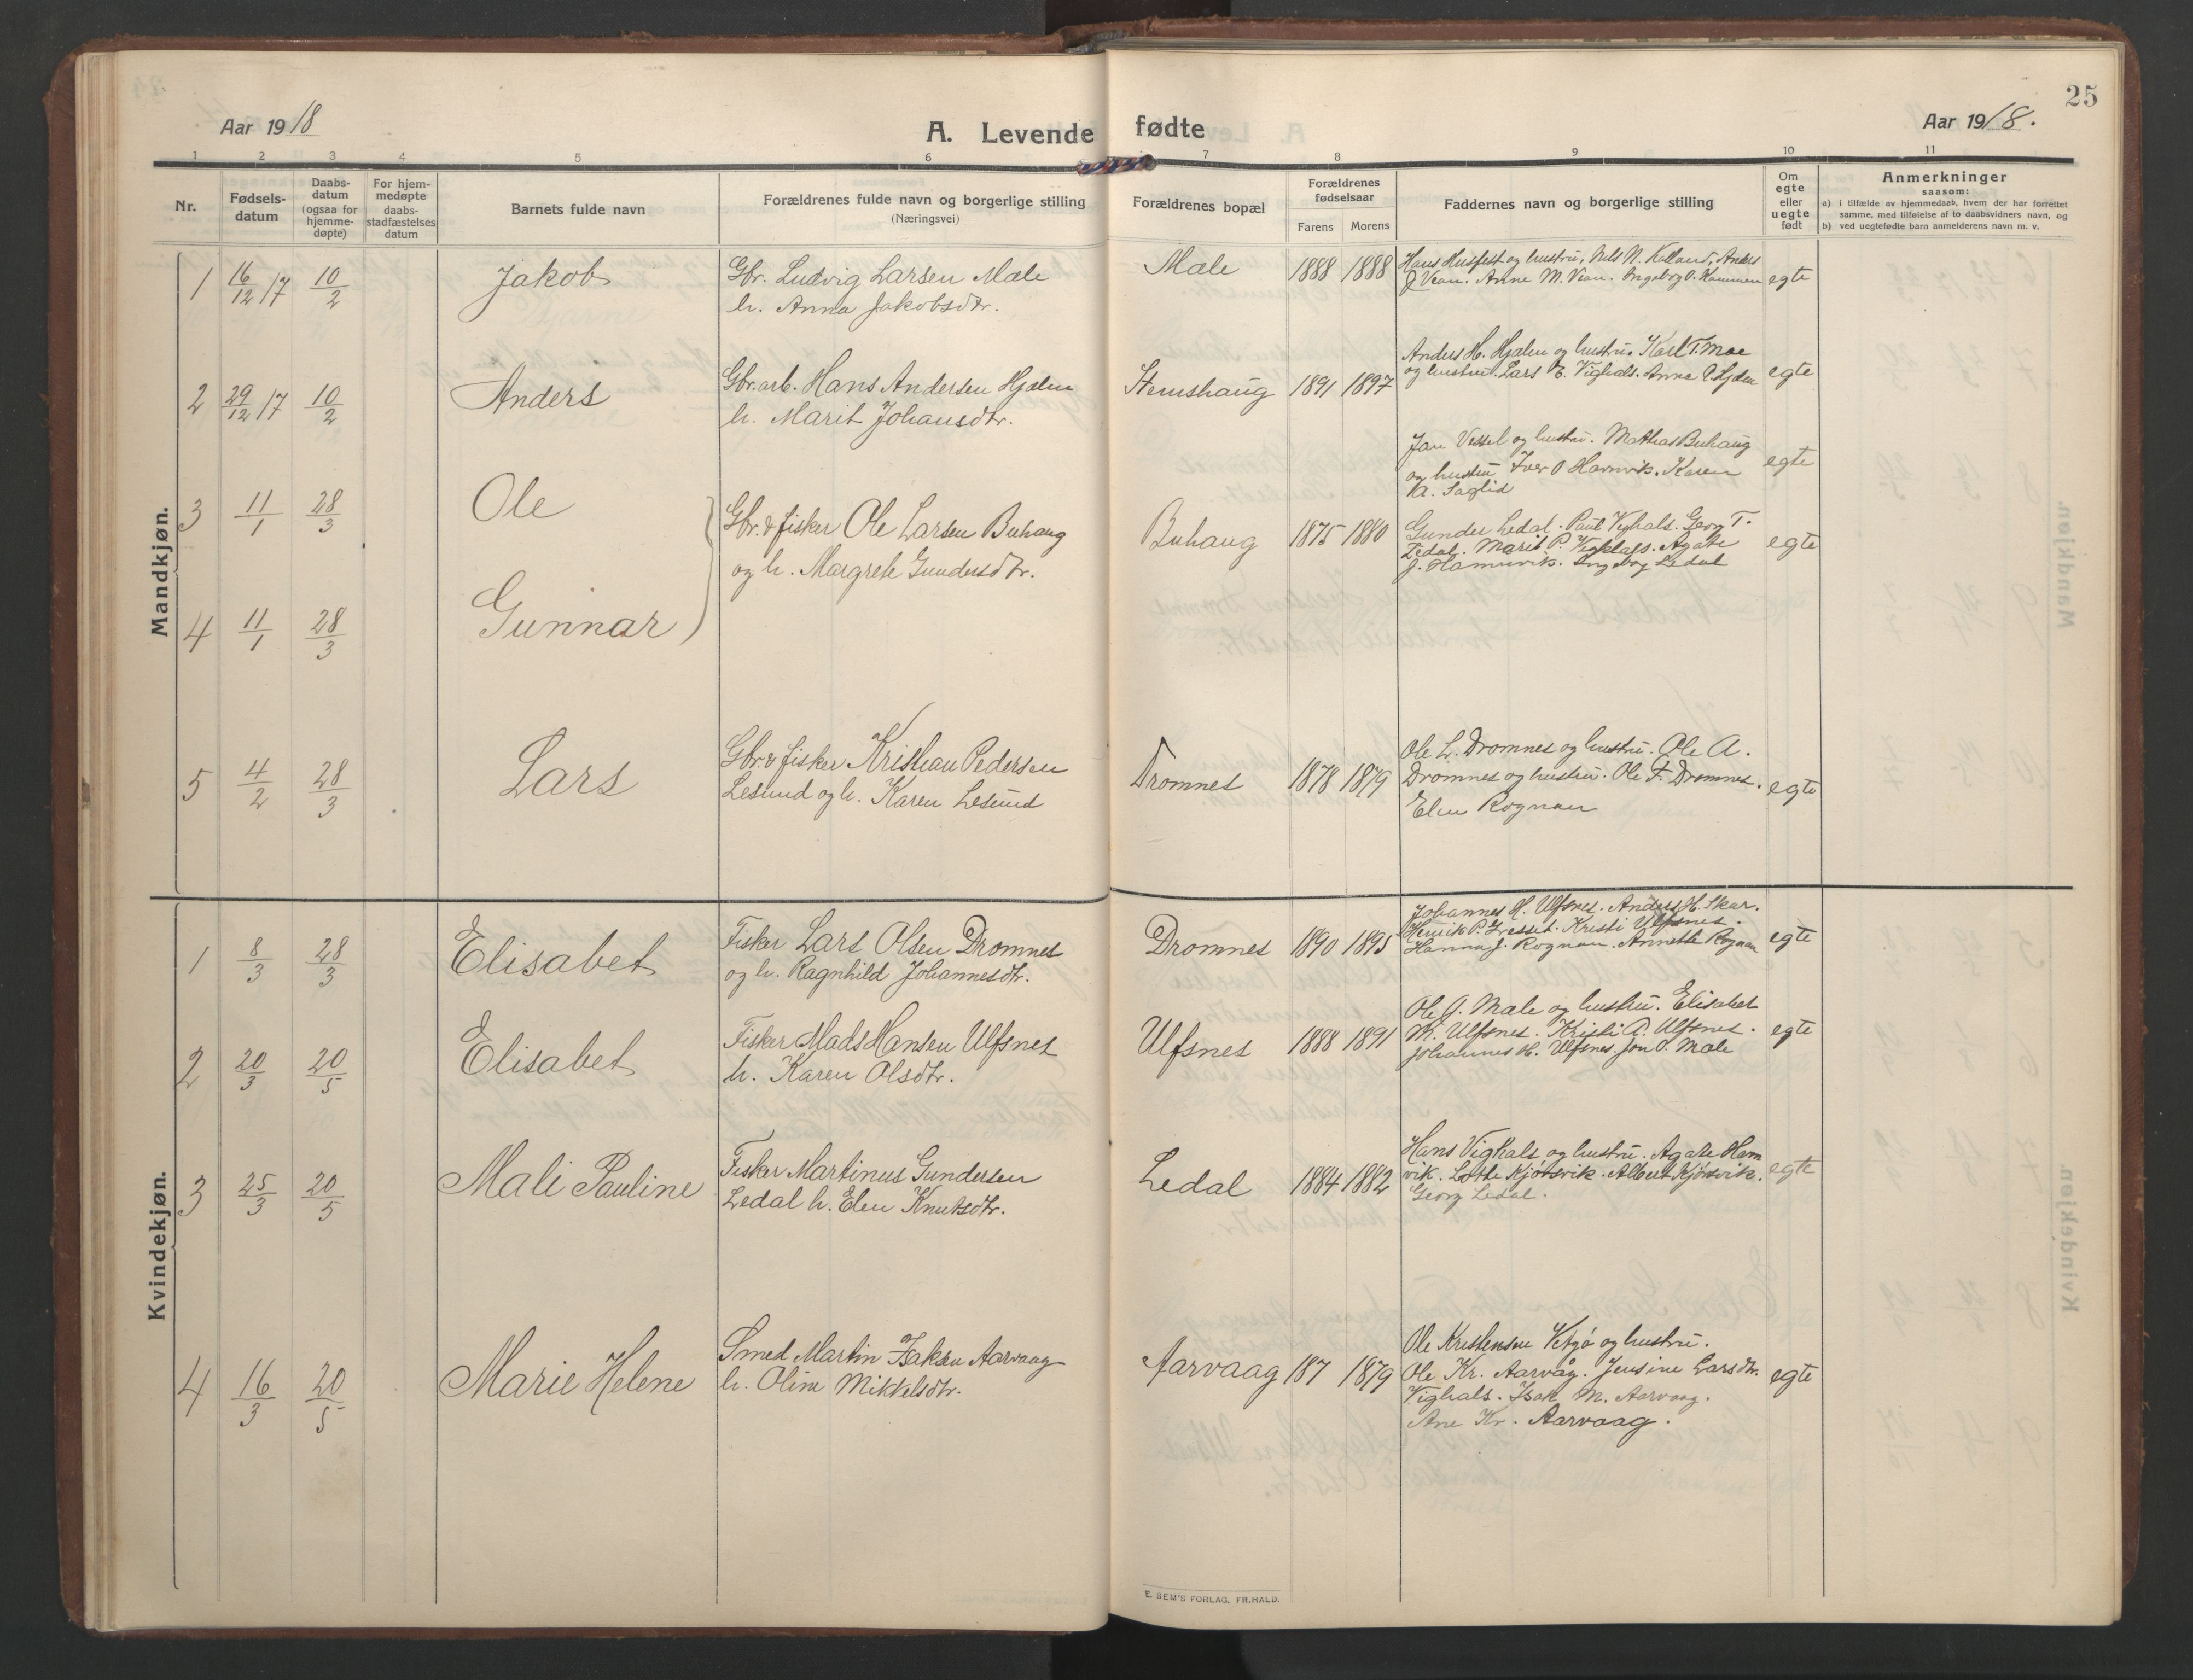 25
Aar 1918
A. Levende fødte
Aar 1918.
1 2 3 4 5 6 7 8 9 10 11
Nr.
Fødsels-
datum
Daabs-
datum
(ogsaa for
hjemme-
døpte)
For hjem-
medøpte
daabs-
stadfæstelses
datum
Barnets fulde navn
Forældrenes fulde navn og borgerlige stilling
(Næringsvei)
Forældrenes bopæl
Forældrenes
fødselsaar
Farens Morens
Faddernes navn og borgerlige stilling
Om
egte
eller
uegte
født
Anmerkninger
saasom:
a) i tilfælde av hjemmedaab, hvem der har forrettet
samme, med tilføielse af to daabsvidners navn, og
b) ved uegtefødte barn anmelderens navn m. v.
Mandkjøn.
1 16/12 17 10/2 Jakob
Gbr. Ludvig Larsen Male
h. Anna Jakobsdtr.
Male 1888 1888
Hans Husfest og hustru, Nils N. Kalland, Anders
J. Vean. Anne M. Vean. Ingeborg O. Kammen
egte
2 29/12 17 10/2 Anders
Gbr. arb. Hans Andersen Hjelen
h. Marit Johansdtr.
Stemshaug 1891 1897
Anders H. Hjelen og hustru. Karl T. Moe
og hustru. Lars E. Vighals. Anna Hjelen
egte
3 11/1 28/3 Ole
4 11/1 28/3 Gunnar
Gbr. & fisker Ole Larsen Buhaug
og h. Margrete Gundersdtr.
Buhaug 1875 1880
Jan Vessel og hustru. Mathias Buhaug
og hustru Iver O Hamnvik. Karen
A. Saglid
egte
Gunder Ledal. Paul Vighals. Georg T.
Ledal. Marit P. Vighals. Agate
J. Hamnvik. Ingeborg Ledal
egte
5 4/2 28/3 Lars
Gbr. & fisker Kristian Pedersen
Lesund og h. Karen Lesund
Dromnes 1878 1879
Ole L. Dromnes og hustru. Ole A.
Dromnes og hustru. Ole F. Dromnes.
Elen Rognan
egte
Kvindekjøn.
1 8/3 28/3 Elisabet
Fisker Lars Olsen Dromnes
og h. Ragnhild Johannesdtr.
Dromnes 1890 1895
Johannes H. Ulfsnes. Anders H. Skar.
Henrik P. Gresset. Kristi Ulfsnes.
Hanna J. Rognan. Annette Rognan
egte
2 20/3 20/5 Elisabet
Fisker Mads Hansen Ulfsnes
h. Karen Olsdtr.
Ulfsnes 1888 1891
Ole J. Male og hustru. Elisabet
M. Ulfsnes. Kristi A. Ulfsnes.
Johannes H. Ulfsnes. Jon O. Male
egte
3 25/3 20/5 Mali Pauline
Fisker Martinus Gundersen
Ledal h. Elen Knutsdtr.
Ledal 1884 1882
Hans Vighals og hustru. Agate Ham
vik. Lotte Kjørsvik. Albert Kjørsvik.
Georg Ledal.
egte
4 16/3 20/5 Marie Helene
Smed Martin Isaksen Aarvaag
h. Olina Mikkelsdtr.
Aarvaag 187 1879
Ole Kristensen Vetgø og hustru.
Ole Kr. Aarvåg. Jensine Larsdtr.
Vighals. Isak M. Aarvaag.
Ane Kr. Aarvaag.
egte
E. SEM'S FORLAG, FR.HALD.